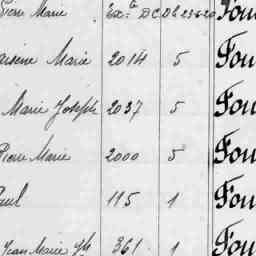 Pierre Marie Ex: DC Dh 23-6-20 Fou
Marie 2014 5 Fou
Marie Joseph 2037 5 Fou
Pierre Marie 2000 5 Fou
Paul 115 1 Fou
Jean Marie Jh 361 1 Fou